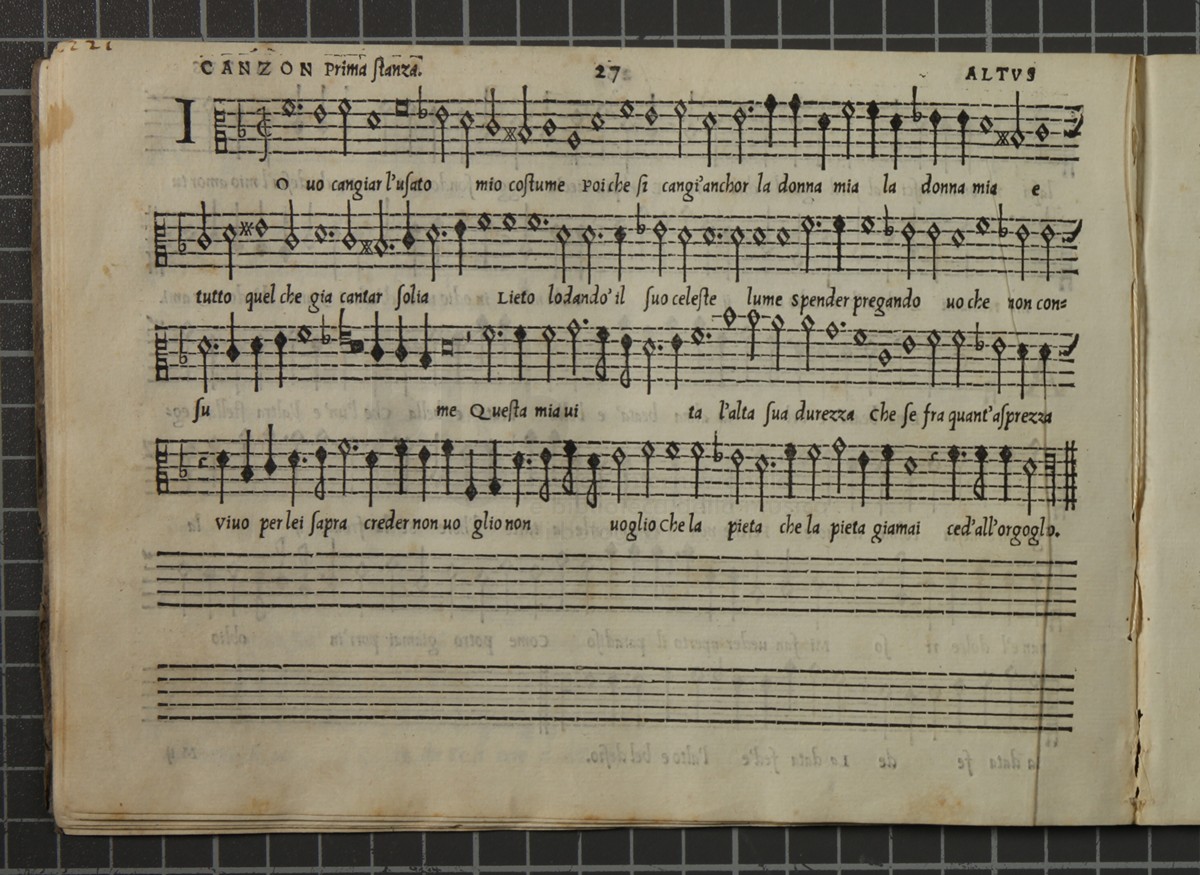 CANZON Prima stanza. 27 ALTVS
I
O uo cangiar l'usato mio costume Poi che si cangi'anchor la donna mia la donna mia e
tutto quel che gia cantar solia Lieto lodando'il suo celeste lume Spender pregando uo che non con=
su me Questa mia ui ta l'alta sua durezza Che se fra quant'asprezza
Viuo per lei sapra creder non uo glio non uoglio Che la pieta che la pieta giamai ced'all'orgoglo.